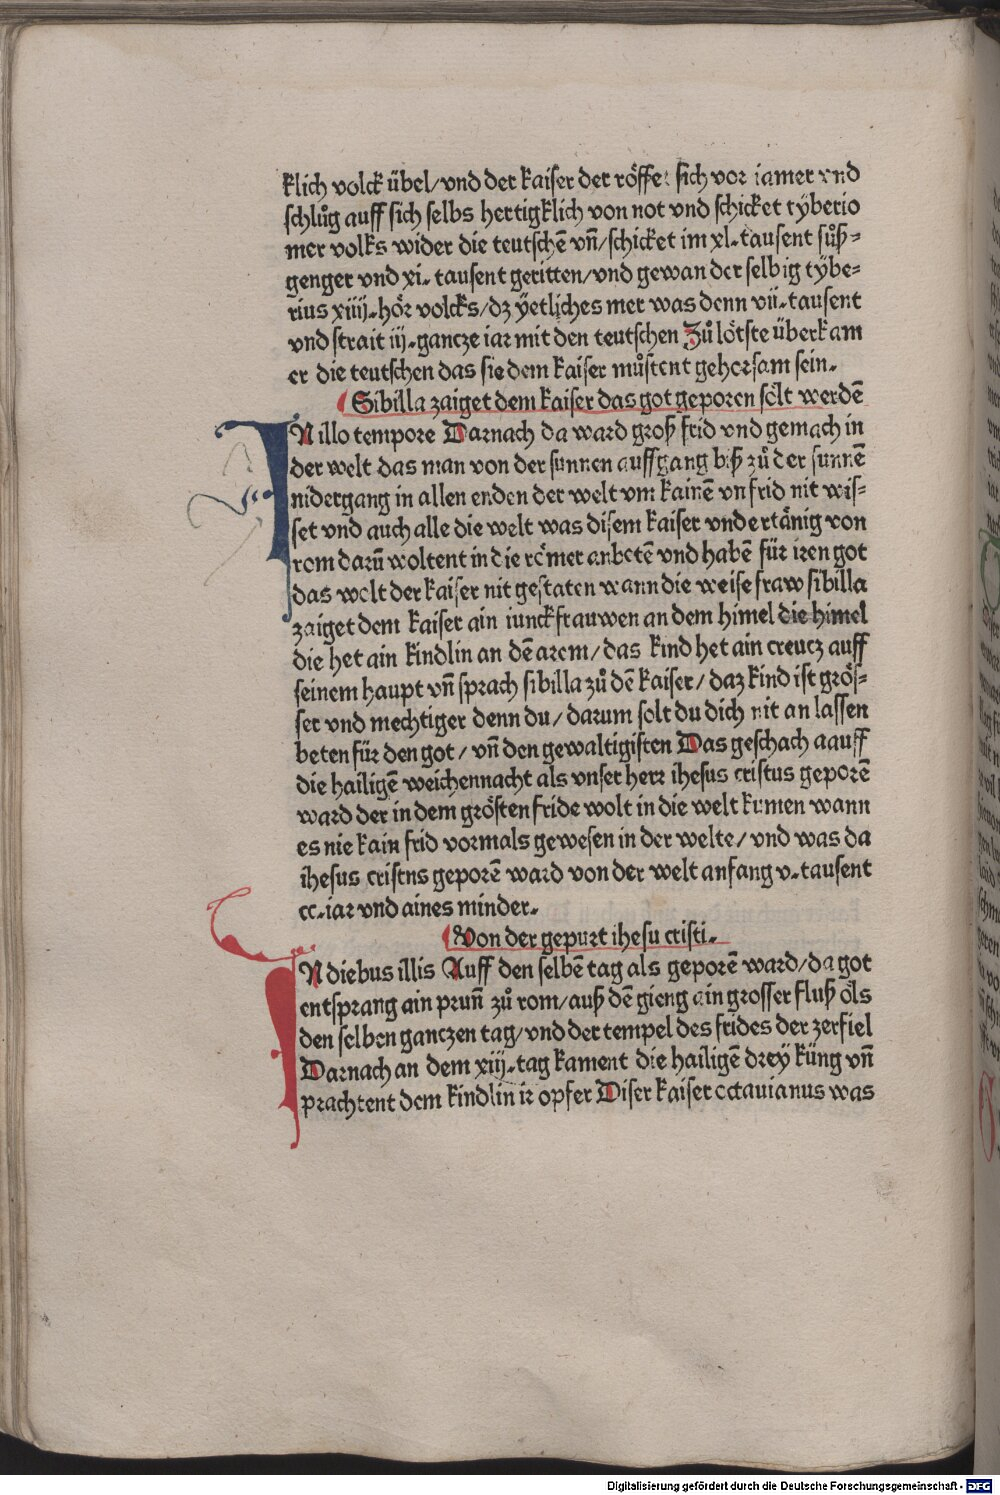 klich volck übel/vnd der kaiser der röffet sich vor iamer vnd
schlůg auff sich selbs hertigklich von not vnd schicket tyberio
mer volks wider die teutschē vn̄/schicket im xl. tausent fůß⸗
genger vnd xi. tausent geritten/vnd gewan der selbig tybe⸗
rius xiiij. hör volcks/dz yetliches mer was denn vii. tausent
vnd strait iij. gancze iar mit den teutschen Zů lötste überkam
er die teutschen das sie dem kaiser můstent gehorsam sein.
Sibilla zaiget dem kaiser das got geporen sölt werdē
IN illo tempore Darnach da ward groß frid vnd gemach in
der welt das man von der sunnen auffgang biß zů der sunnē
nidergang in allen enden der welt vm kainē vnfrid nit wis⸗
set vnd auch alle die welt was disem kaiser vndertänig von
rom darū woltent in die römer anbetē vnd habē für iren got
das wolt der kaiser nit gestaten wann die weise fraw sibilla
zaiget dem kaiser ain iunckfrauwen an dem himel die himel
die het ain kindlin an dē arem/das kind het ain creucz auff
seinem haupt vn̄ sprach sibilla zů dē kaiser/daz kind ist grös⸗
ser vnd mechtiger denn du/darum solt du dich nit an lassen
beten für den got/vn̄ den gewaltigisten Das geschach aauff
die hailigē weichennacht als vnser herr ihesus cristus geporē
ward der in dem grösten fride wolt in die welt kumen wann
es nie kain frid vormals gewesen in der welte/vnd was da
ihesus cristns geporē ward von der welt anfang v. tausent
cc. iar vnd aines minder.
Von der gepurt ihesu cristi.
IN diebus illis Auff den selbē tag als geporē ward/da got
entsprang ain prun̄ zů rom/auß dē gieng ain grosser fluß öls
den selben ganczen tag/vnd der tempel des frides der zerfiel
Darnach an dem xiij. tag kament die hailigē drey küng vn̄
prachtent dem kindlin ir opfer Diser kaiser octauianus was
Digitalisierung gefördert durch die Deutsche Forschungsgemeinschaft - DFG